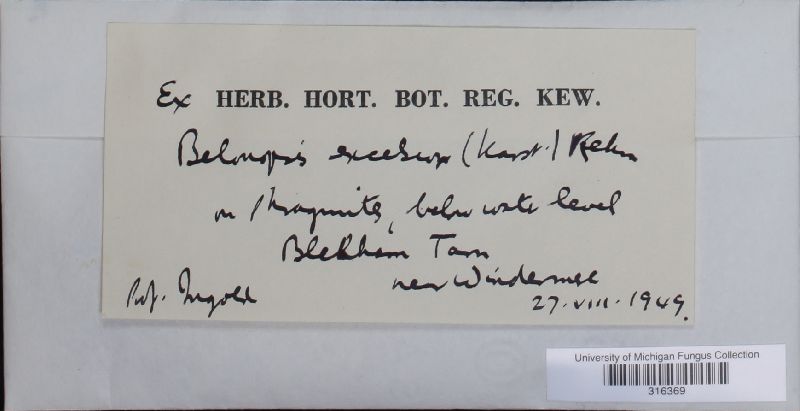 Ex HERB. HORT. BOT. REG. KEW.
Belonopsis excelsior (Karst.) Rehm
on Phragmites, below water level
Blelham Tarn
near Windermere
Prof. Ingold
27.VIII.1949.
University of Michigan Fungus Collection
316369